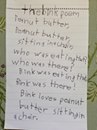 the bink poem
Peanut butter,
Peanut butter
sitting in chair
Who was eating that
who was there?
Bink was eating that
Bink was there!
Bink loves peanut
butter sitting in
a chair.